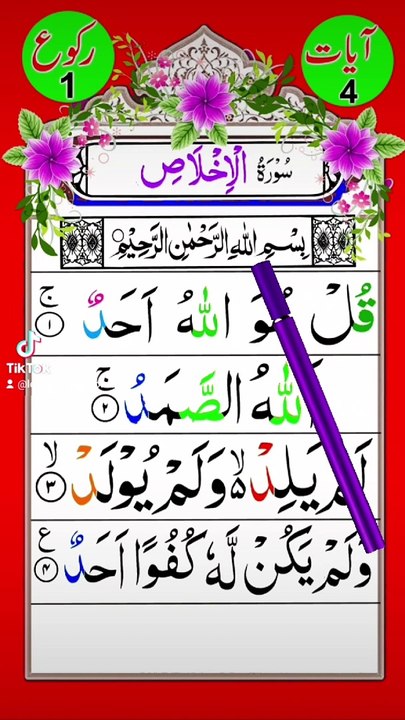 آیات
4
رکوع
1
سُوْرَةُ الْاِخْلَاصِ
بِسْمِ اللّٰهِ الرَّحْمٰنِ الرَّحِيْمِ
قُلْ هُوَ اللّٰهُ اَحَدٌ ۚ ۝۱
اَللّٰهُ الصَّمَدُ ۚ ۝۲
لَمْ يَلِدْ ۙ۬ وَلَمْ يُوْلَدْ ۙ ۝۳
وَلَمْ يَكُنْ لَّهٗ كُفُوًا اَحَدٌ ع ۝۴
TikTok